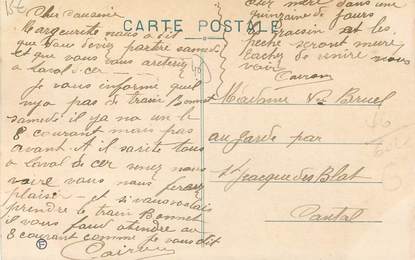 CARTE POSTALE
Cher cousine
Margueritte nous a dit
que vous deviez partire samedi
et que vous
a laval d cer —
Je vous informe quil
nya pas de train Bonnet
samedi il ya na un le
8 courant mais pas
avant
a laval de cer venez nous
voire vous nous ferez
plaisir — et si vous voulez
prendre le train Bonnet
il vous faud atendre au
8 courant comme je vous dit
Cairon
dans une
quinzaine de jours
raisin et les
peche seront mure
tachez de venire nous
voire
Cairon
Madame Vve Bruel
au garde par
St Jacques des Blat
Cantal